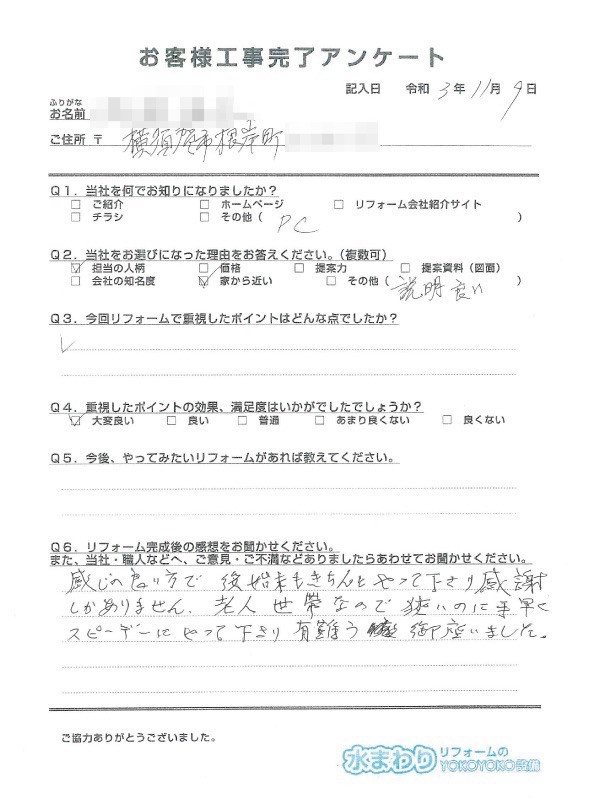 お客様工事完了アンケート
記入日 令和 3 年 11 月 9 日
ふりがな
お名前
ご住所 〒 横須賀市根岸町
Q1．当社を何でお知りになりましたか？
□ ご紹介 □ ホームページ □ リフォーム会社紹介サイト
□ チラシ □ その他（ PC ）
Q2．当社をお選びになった理由をお答えください。（複数可）
☑ 担当の人柄 □ 価格 □ 提案力 □ 提案資料（図面）
□ 会社の知名度 ☑ 家から近い □ その他（ 説明良い ）
Q3．今回リフォームで重視したポイントはどんな点でしたか？
Q4．重視したポイントの効果、満足度はいかがでしたでしょうか？
☑ 大変良い □ 良い □ 普通 □ あまり良くない □ 良くない
Q5．今後、やってみたいリフォームがあれば教えてください。
Q6．リフォーム完成後の感想をお聞かせください。
また、当社・職人などへ、ご意見・ご不満などありましたらあわせてお聞かせください。
感じの良い方で 後始末もきちんとやって下さり感謝
しかありません。老人世帯なので 狭いのに手早く
スピーデーにやって下さり 有難う 御座いました。
ご協力ありがとうございました。
水まわりリフォームのYOKOYOKO設備